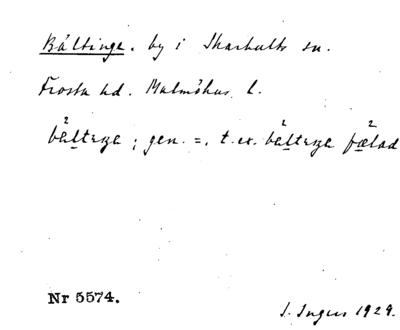 Bältinge. by i Skarhults sn.
Frosta hd. Malmöhus l.
bälteŋe; gen. =. t. ex. bälteŋe fælad
Nr 5574.
J. Ingers 1929.